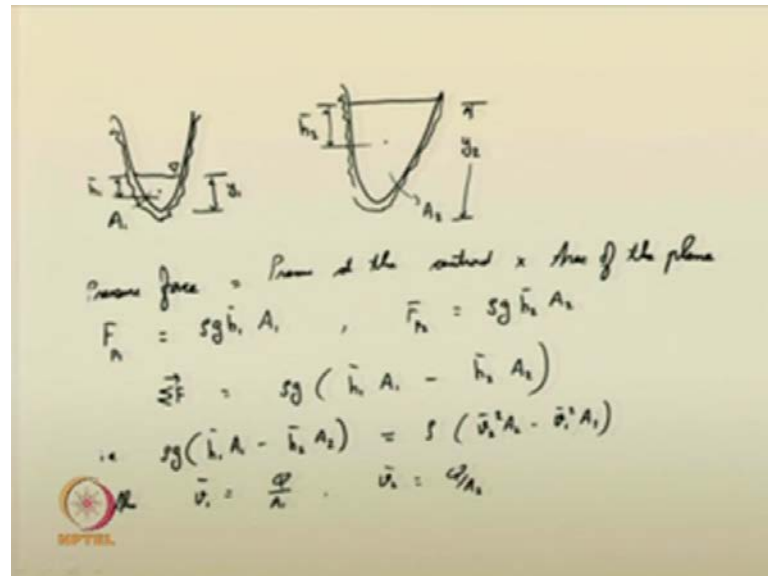 h̄₁ A₁ y₁ h̄₂ A₂ y₂
Pressure force = Pressure at the centroid × Area of the plane
F_p₁ = ρg h̄₁ A₁ , F_p₂ = ρg h̄₂ A₂
ΣF⃗ = ρg ( h̄₁ A₁ - h̄₂ A₂ )
i.e ρg ( h̄₁ A₁ - h̄₂ A₂ ) = ρ ( v̄₂² A₂ - v̄₁² A₁ )
v̄₁ = Q/A₁ . v̄₂ = Q/A₂
NPTEL